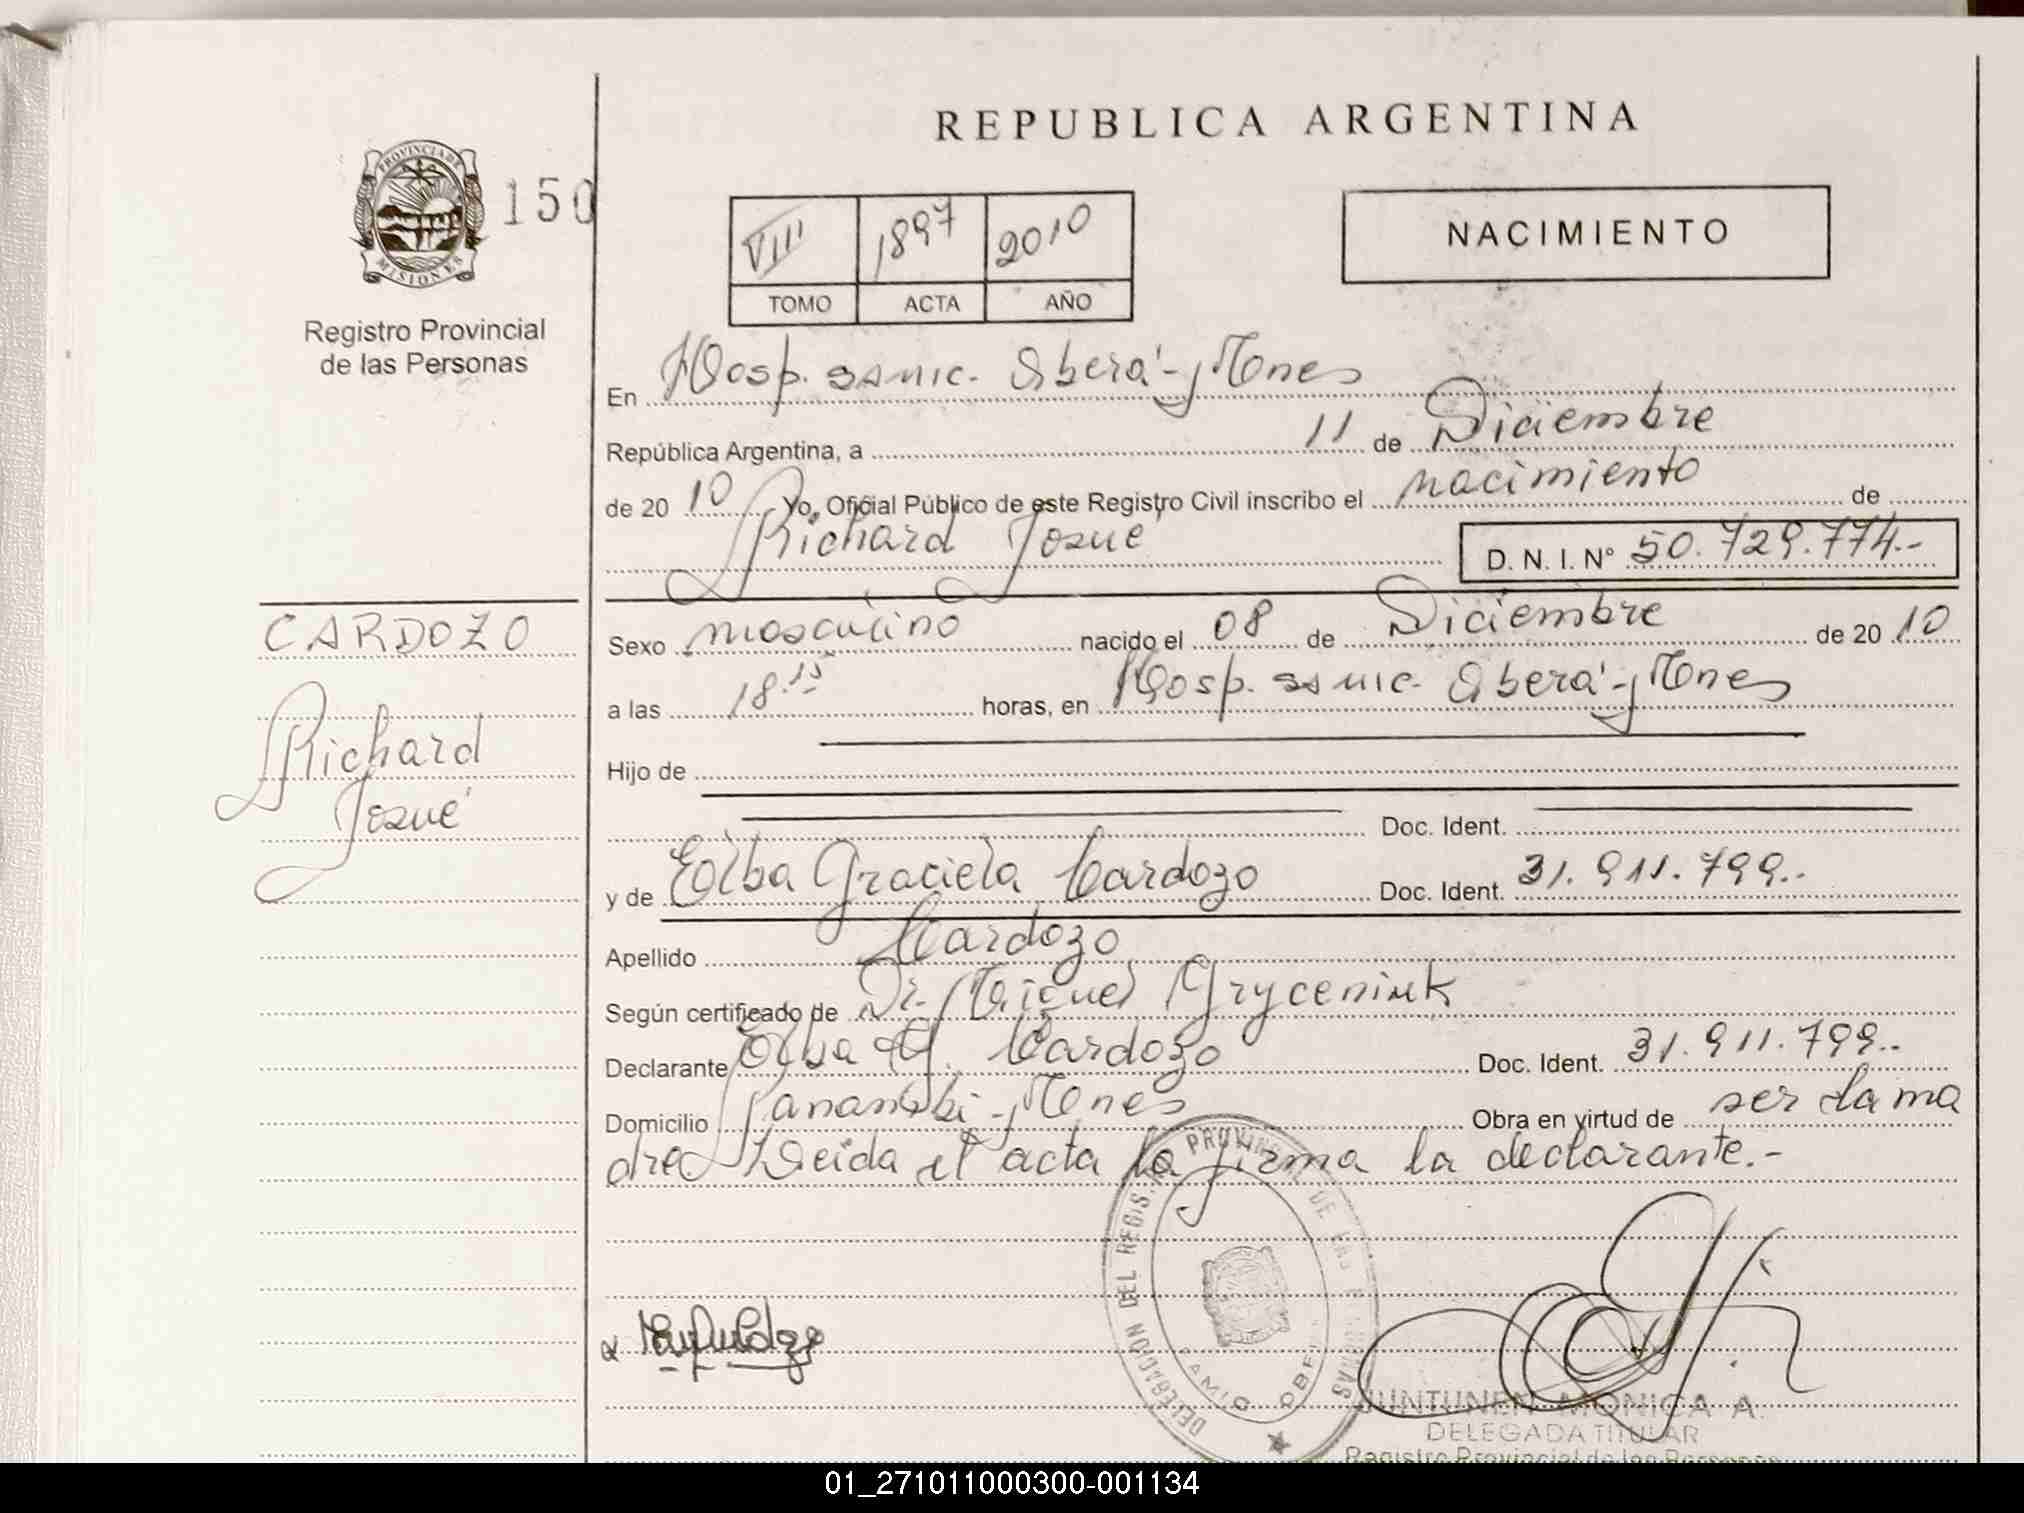 REPUBLICA ARGENTINA
PROVINCIA DE
MISIONES
150
Registro Provincial
de las Personas
VIII 1897 2010
TOMO ACTA AÑO
NACIMIENTO
En Hosp. SAMIC. Oberá - Mnes
República Argentina, a 11 de Diciembre
de 2010 Yo, Oficial Público de este Registro Civil inscribo el nacimiento de
Richard Josué D. N. I. Nº 50.729.774.-
CARDOZO
Richard
Josué
Sexo masculino nacido el 08 de Diciembre de 2010
a las 18.15 horas, en Hosp. SAMIC. Oberá - Mnes
Hijo de
Doc. Ident.
y de Elba Graciela Cardozo Doc. Ident. 31.911.799.-
Apellido Cardozo
Según certificado de Dr. Miguel
Declarante Elba G. Cardozo Doc. Ident. 31.911.799.-
Domicilio Panambí - Mnes Obra en virtud de ser la ma
dre Leida el acta la firma la declarante.-
DELEGACION DEL REGIS. PROVINCIAL DE LAS PERSONAS
JUNTUNEN MONICA A.
DELEGADA TITULAR
Registro Provincial de las Personas
01_271011000300-001134